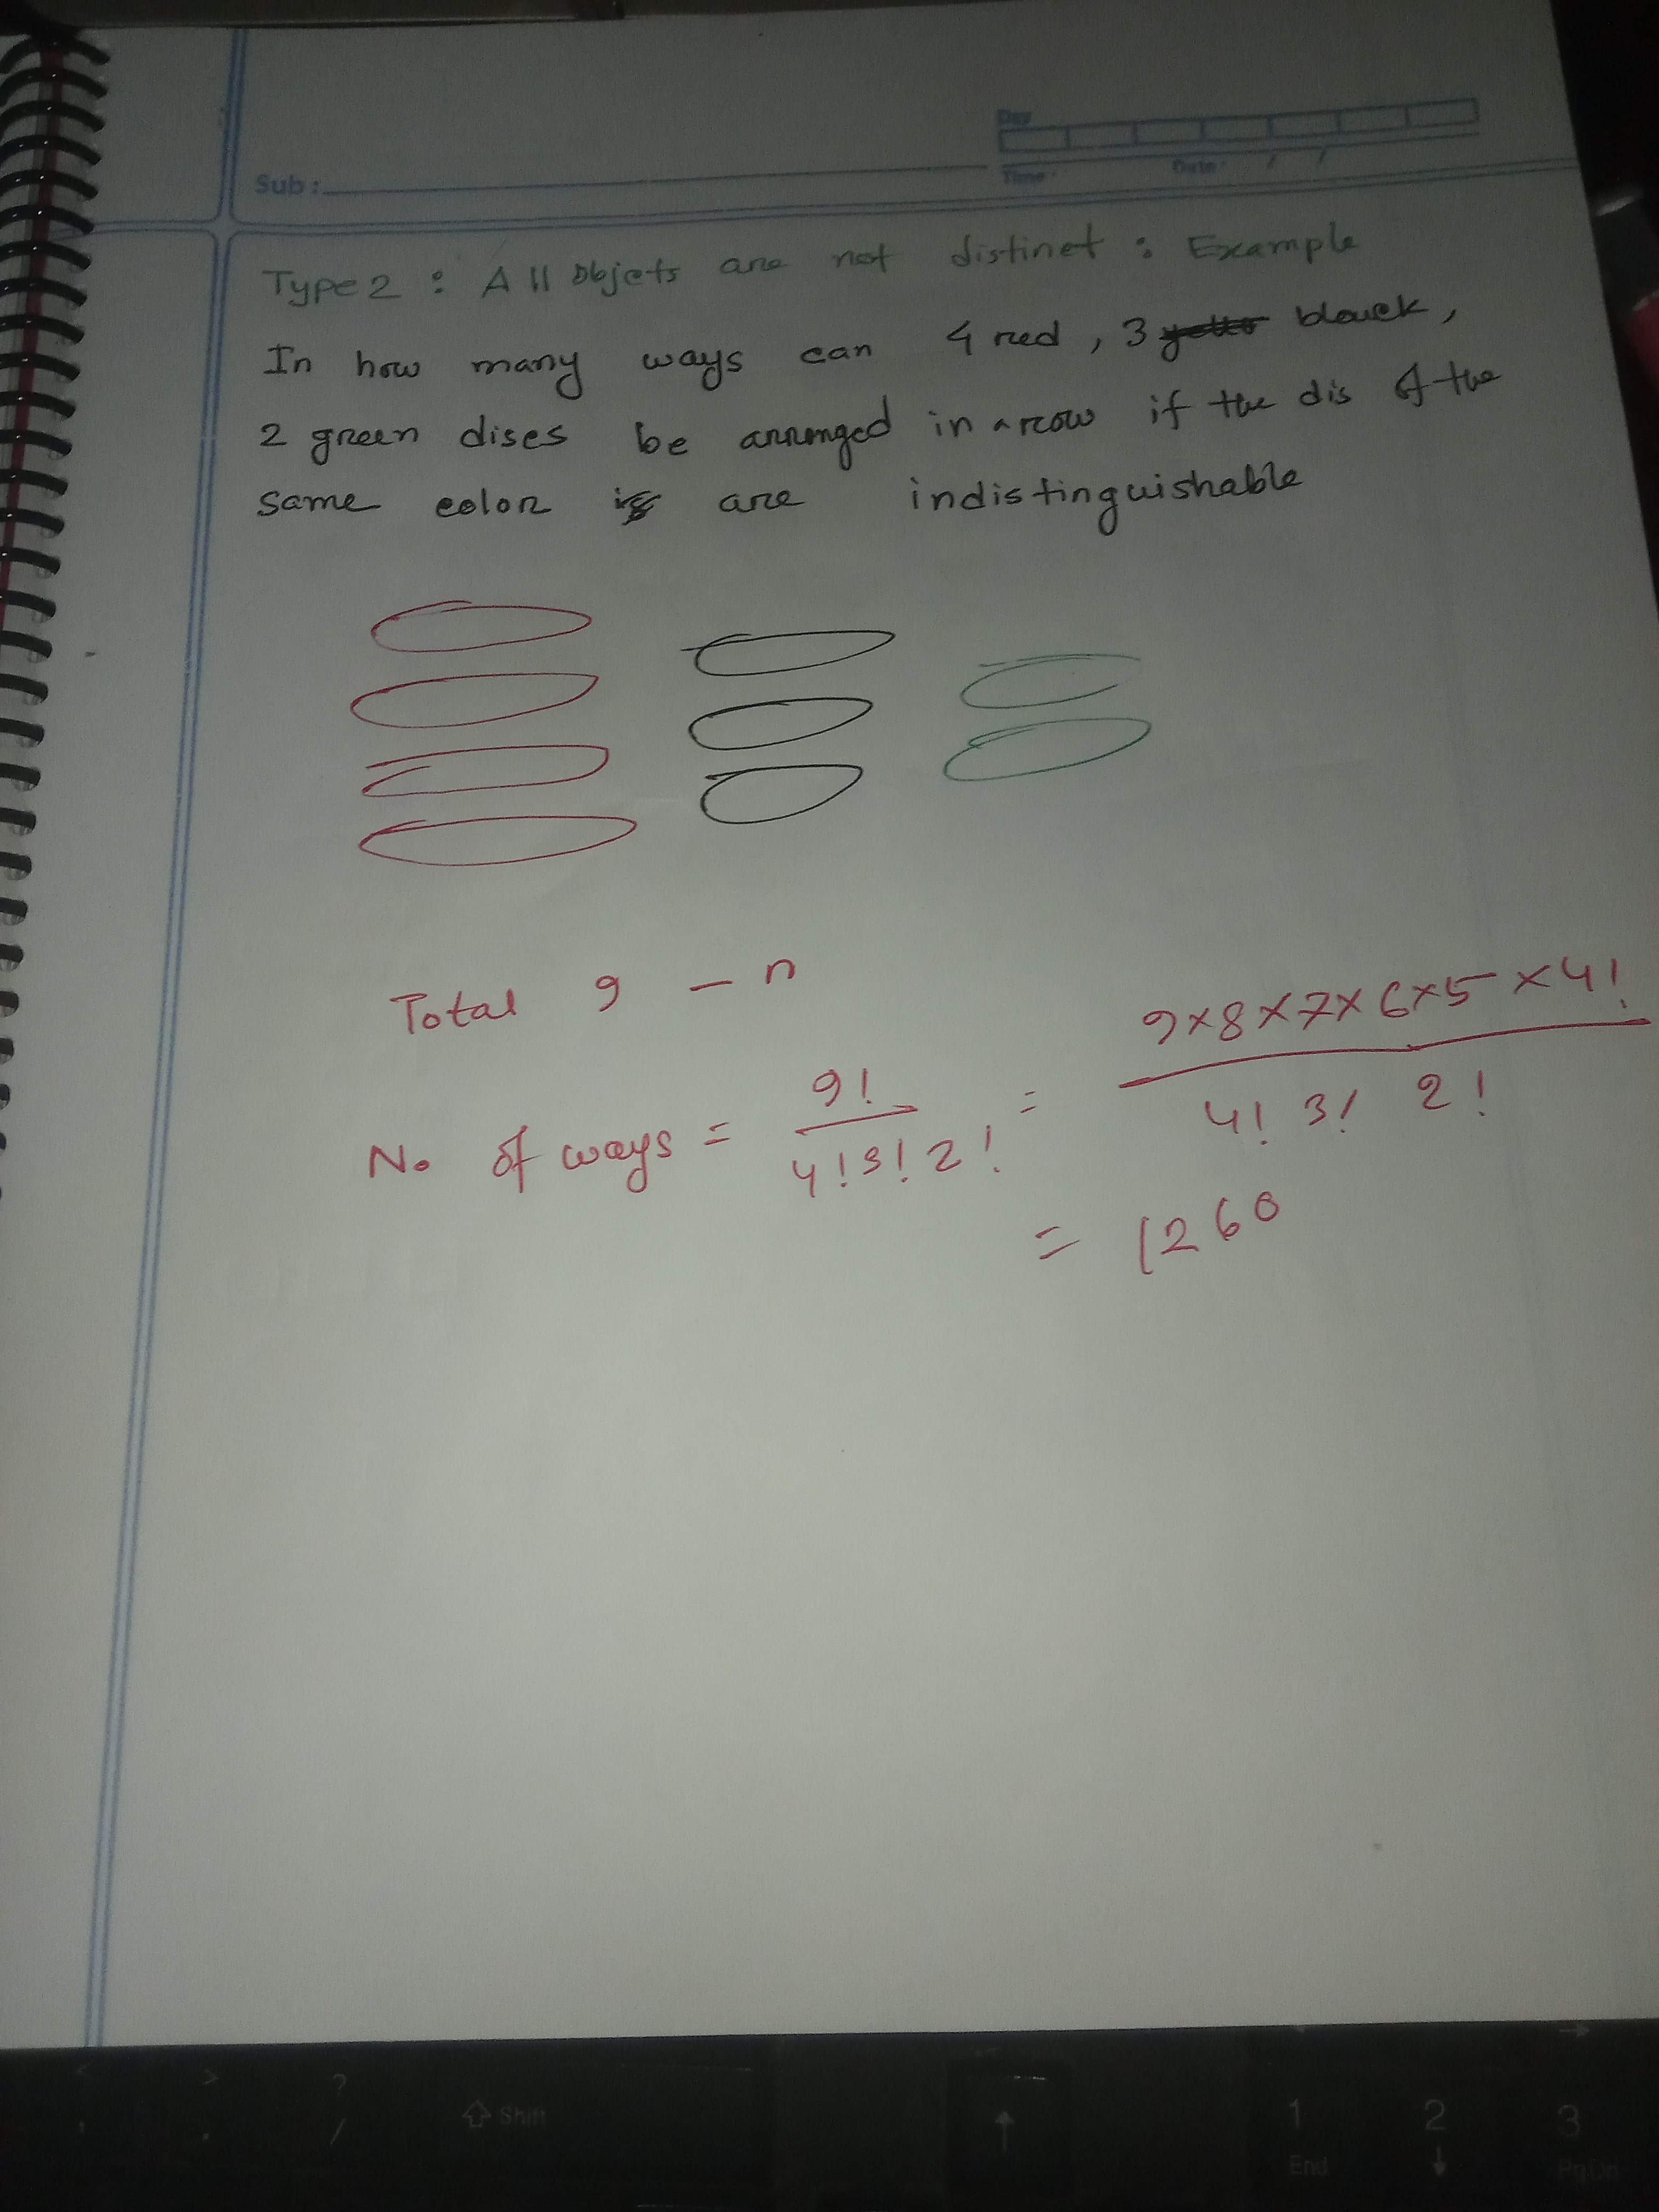 Day
Time · Date · / /
Sub :
Type 2 : All Objets are not distinet : Example
In how many ways can 4 red , 3 blauck ,
2 green dises be arranged in a row if the dis of the
same color are indistinguishable
Total 9 – n
No of ways = 9! / 4! 3! 2! = 9×8×7×6×5×4! / 4! 3! 2!
= 1260
< > ? ⇧ Shift
, . / ↑ 1 2 3
End ↓ PgDn